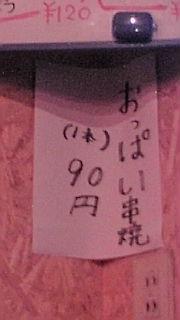 ¥120
おっぱい串焼
(1本)
90
円